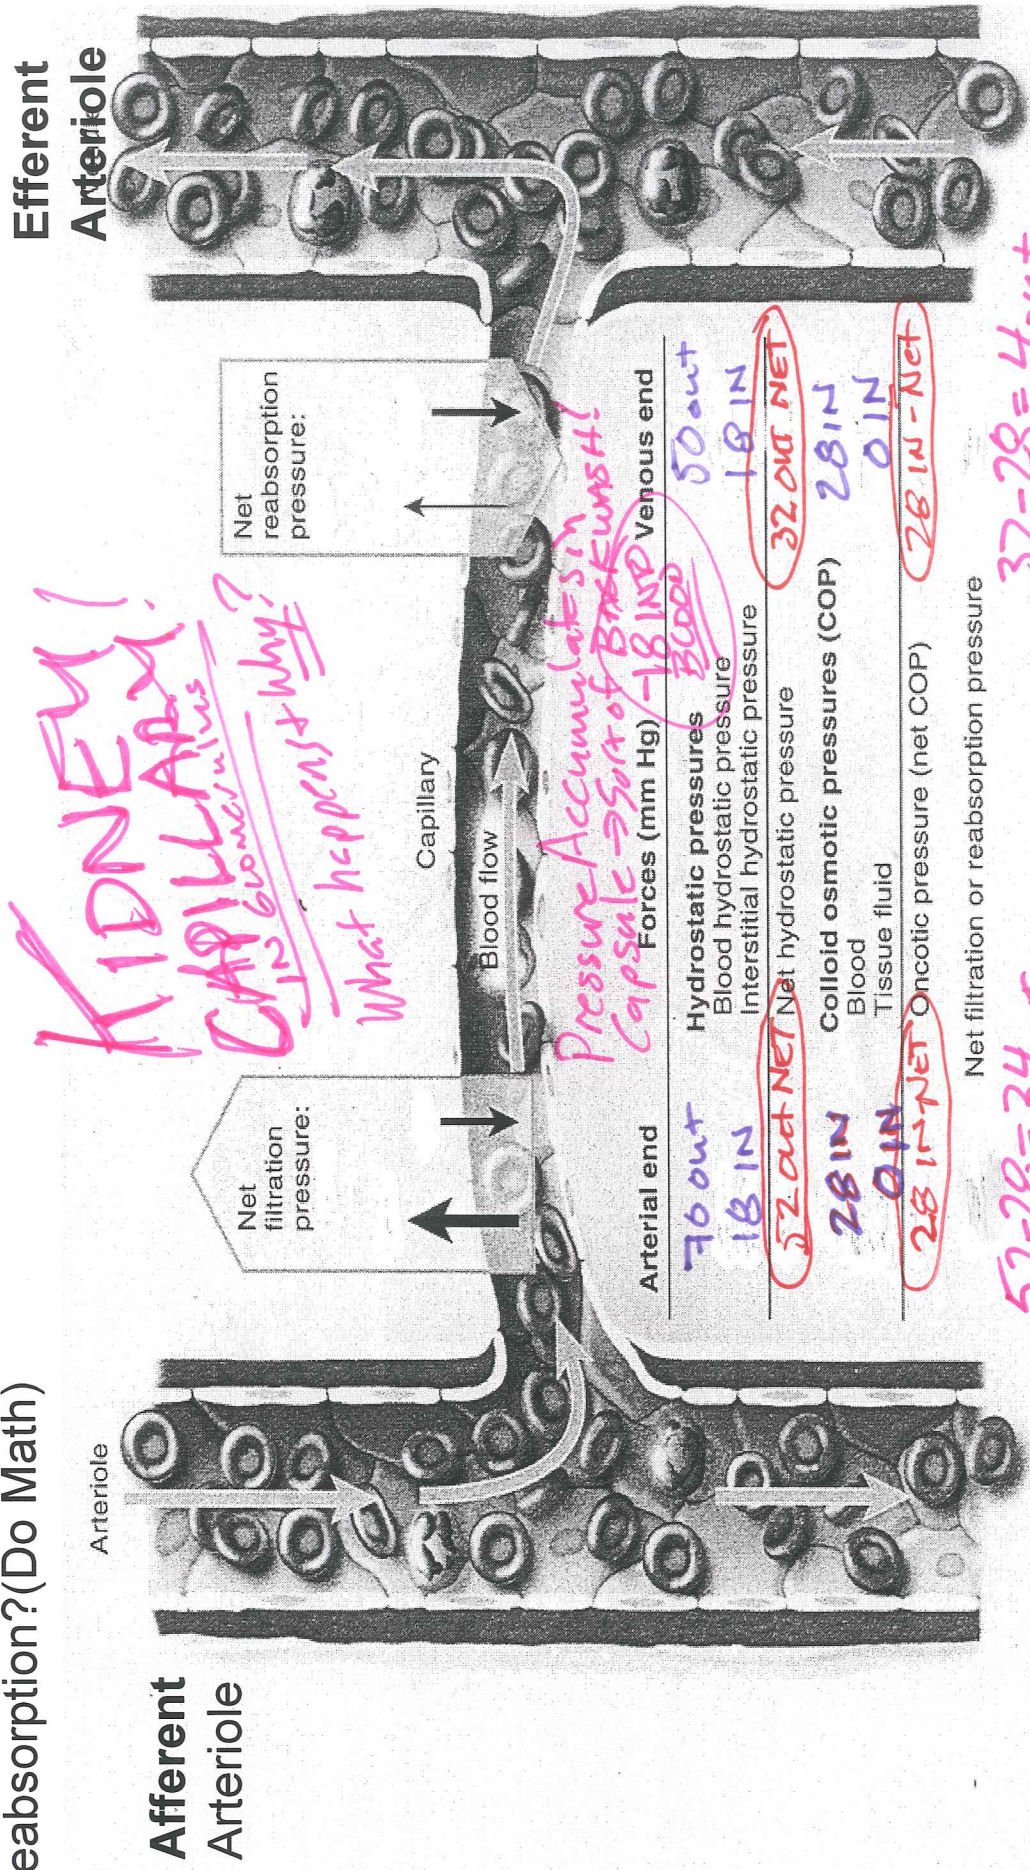 eabsorption?(Do Math)
Afferent
Arteriole
Efferent
Arteriole
Arteriole
KIDNEY!
CAPILLARY
IN GLOMERULUS
What happens + Why?
Net
filtration
pressure:
Net
reabsorption
pressure:
Capillary
Blood flow
Pressure Accumulates in
Capsule → Sort of BACKWASH!
-18 INTO
BLOOD
Arterial end Forces (mm Hg) Venous end
Hydrostatic pressures
70 out Blood hydrostatic pressure 50 out
18 IN Interstitial hydrostatic pressure 18 IN
52 out NET Net hydrostatic pressure 32 OUT NET
Colloid osmotic pressures (COP)
28 IN Blood 28 IN
0 IN Tissue fluid 0 IN
28 IN-NET Oncotic pressure (net COP) 28 IN-Net
Net filtration or reabsorption pressure
52-28=24 32-28=4 out